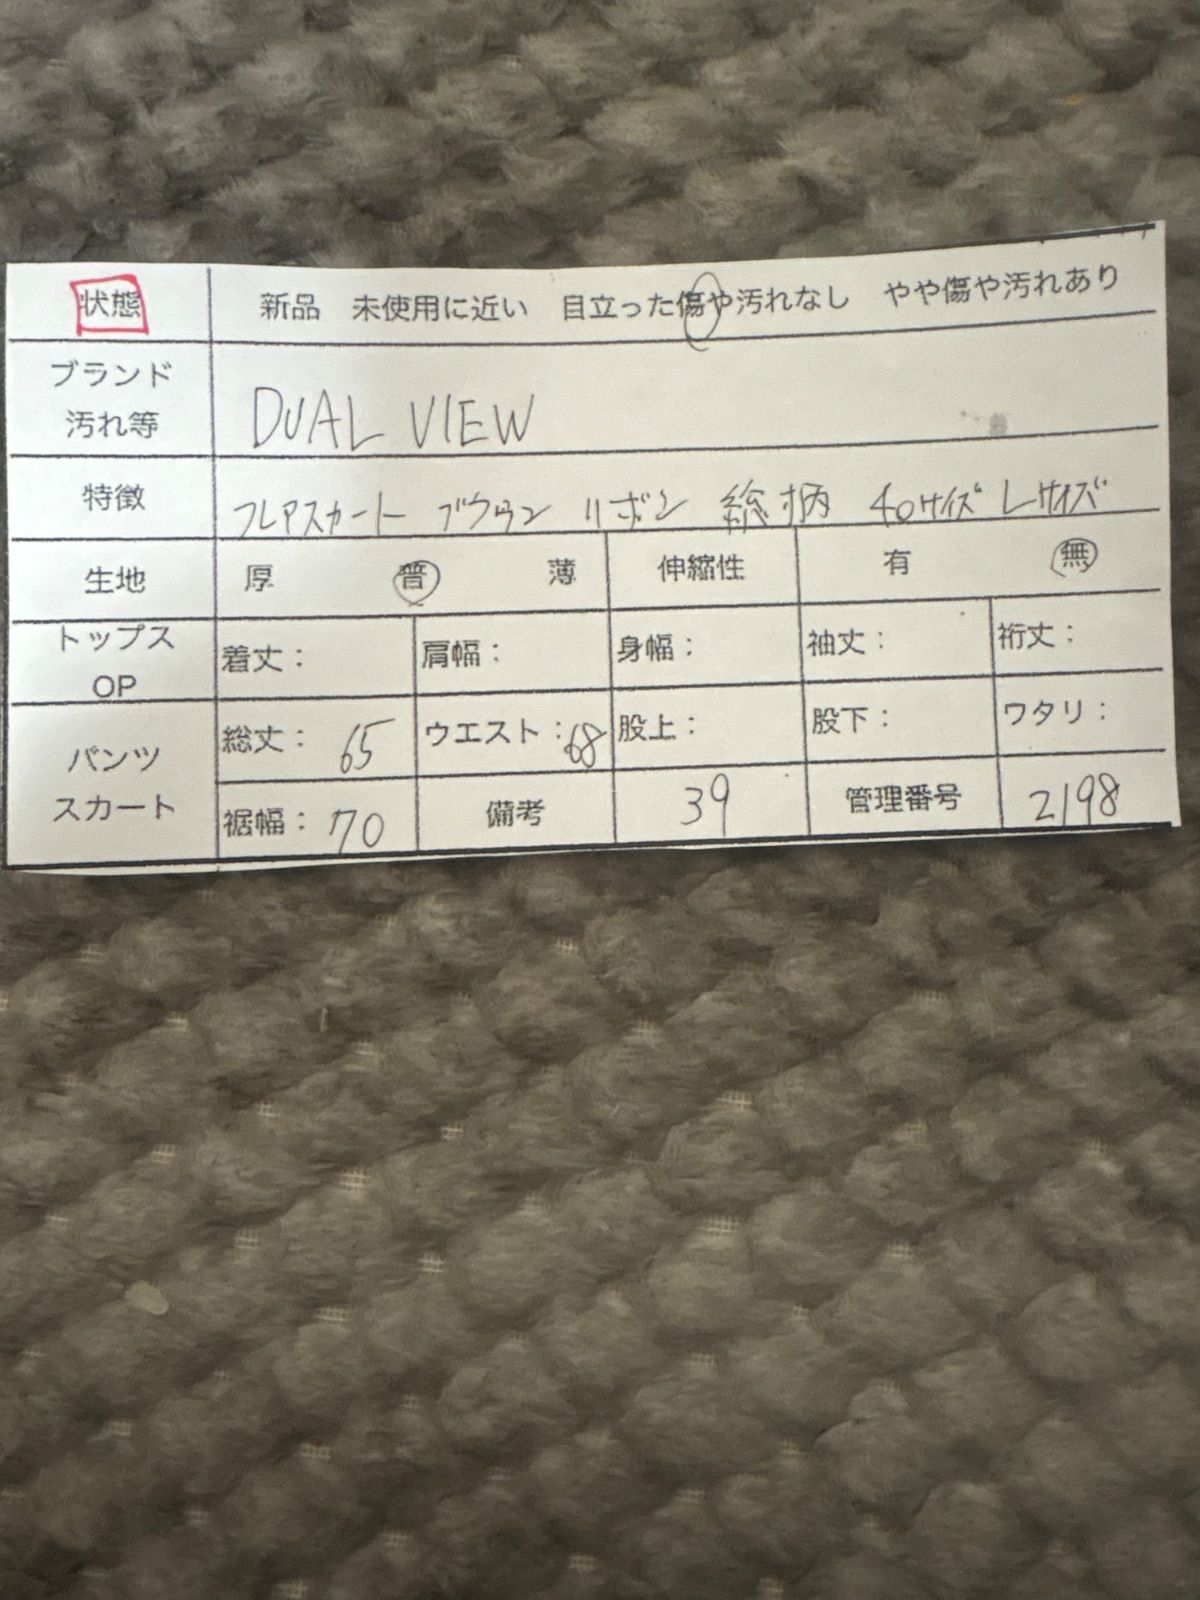 状態 新品 未使用に近い 目立った傷や汚れなし やや傷や汚れあり
ブランド
汚れ等
DUAL VIEW
特徴 フレアスカート ブラウン リボン 総柄 40サイズ Lサイズ
生地 厚 普 薄 伸縮性 有 無
トップス
OP
着丈： 肩幅： 身幅： 袖丈： 裄丈：
パンツ
スカート
総丈： 65 ウエスト： 68 股上： 股下： ワタリ：
裾幅： 70 備考 39 管理番号 2198